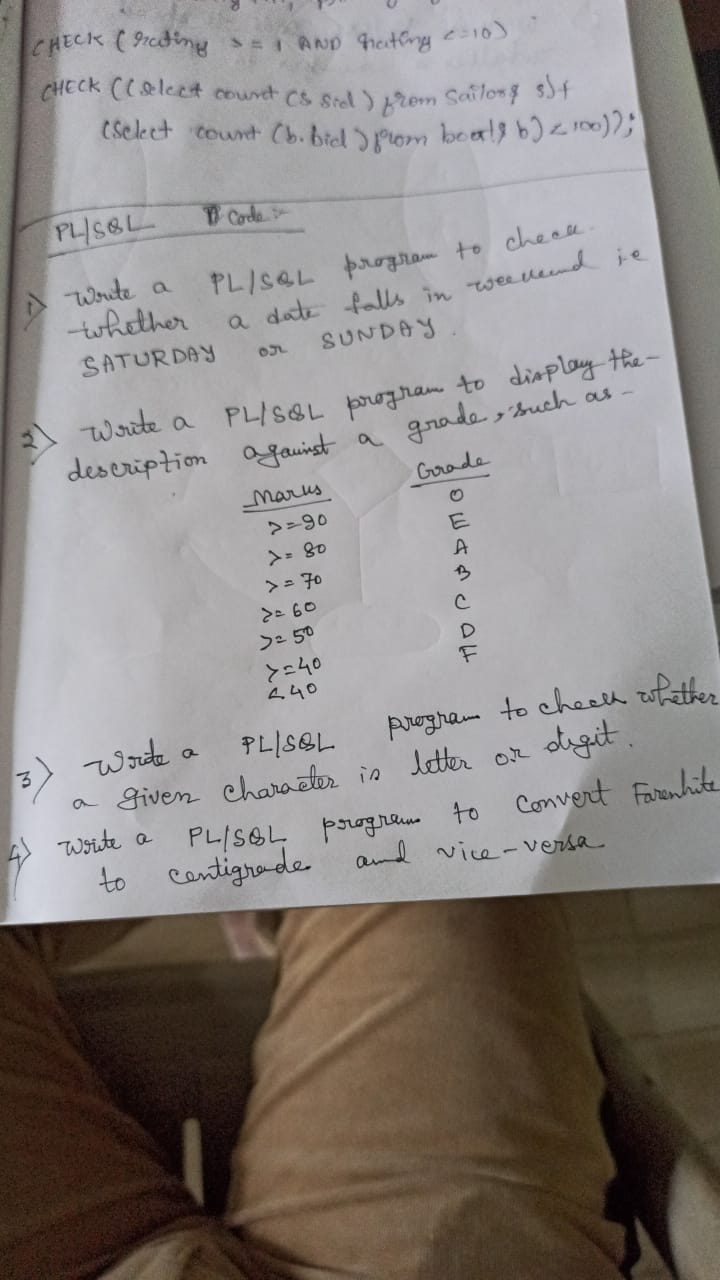 CHECK (rating >= 1 AND rating <=10)
CHECK ((select count (s.sid) from sailors s) +
(select count (b.bid) from boats b) < 100));
PL/SQL Code :-
1) Write a PL/SQL program to check
whether a date falls in weekend i.e
SATURDAY or SUNDAY.
2) Write a PL/SQL program to display the
description against a grade, such as -
Marks Grade
>=90 O
>= 80 E
>= 70 A
>= 60 B
>= 50 C
>=40 D
<40 F
3) Write a PL/SQL program to check whether
a given character is letter or digit.
4) Write a PL/SQL program to convert Farenhite
to centigrade and vice-versa